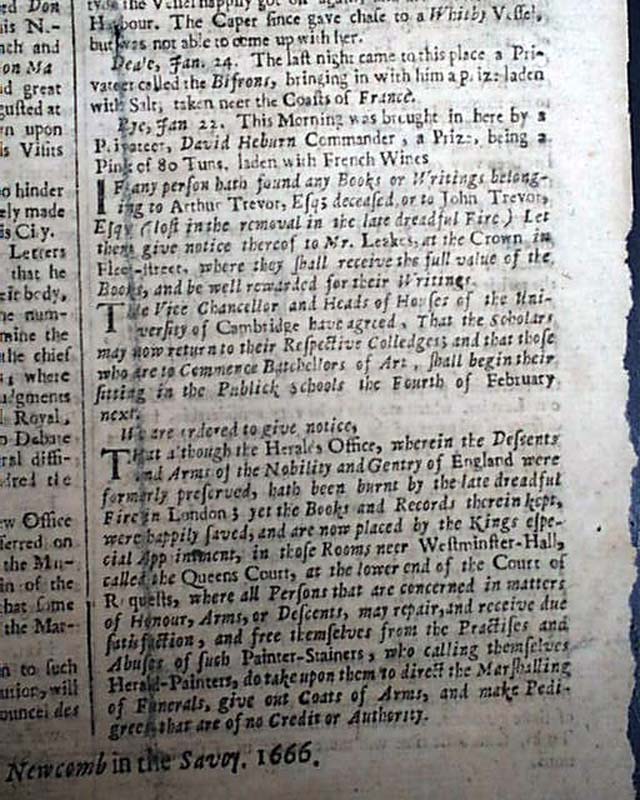 ed Don
his N.-
nch and
on Ma
nd great
gusted at
n upon
is Visits
o hinder
ely made
is City.
Letters
that he
eir body,
he num-
mine the
the chief
, where
udgments
l Royal,
o Debate
ral diffi-
dred the
ew Office
ferred on
the Mu-
in of the
that same
the Mar-
n to such
aution, will
ouncei des
the Vessel happily got off again
Harbour. The Caper since gave chase to a Whitby Vessel,
but was not able to come up with her.
Deale, Jan. 24. The last night came to this place a Pri-
vateer called the Bifrons, bringing in with him a prize laden
with Salt, taken neer the Coasts of France.
Rye, Jan 22. This Morning was brought in here by a
Privateer, David Heburn Commander, a Prize, being a
Pink of 80 Tuns, laden with French Wines
IF any person hath found any Books or Writings belong-
ing to Arthur Trevor, Esq; deceased, or to John Trevor,
Esq; (lost in the removal in the late dreadful Fire) Let
them give notice thereof to Mr. Leakes, at the Crown in
Fleet-street, where they shall receive the full value of the
Books, and be well rewarded for their Writings.
The Vice Chancellor and Heads of Houses of the Uni-
versity of Cambridge have agreed, That the Scholars
may now return to their Respective Colledges; and that those
who are to Commence Batchellors of Art, shall begin their
sitting in the Publick Schools the Fourth of February
next.
We are ordered to give notice,
That although the Heralds Office, wherein the Descents
and Arms of the Nobility and Gentry of England were
formerly preserved, hath been burnt by the late dreadful
Fire in London; yet the Books and Records therein kept,
were happily saved, and are now placed by the Kings espe-
cial Appointment, in those Rooms neer Westminster-Hall,
called the Queens Court, at the lower end of the Court of
Requests, where all Persons that are concerned in matters
of Honour, Arms, or Descents, may repair, and receive due
satisfaction, and free themselves from the Practises and
Abuses of such Painter-Stainers, who calling themselves
Herald-Painters, do take upon them to direct the Marshalling
of Funerals, give out Coats of Arms, and make Pedi-
grees that are of no Credit or Authority.
Newcomb in the Savoy. 1666.